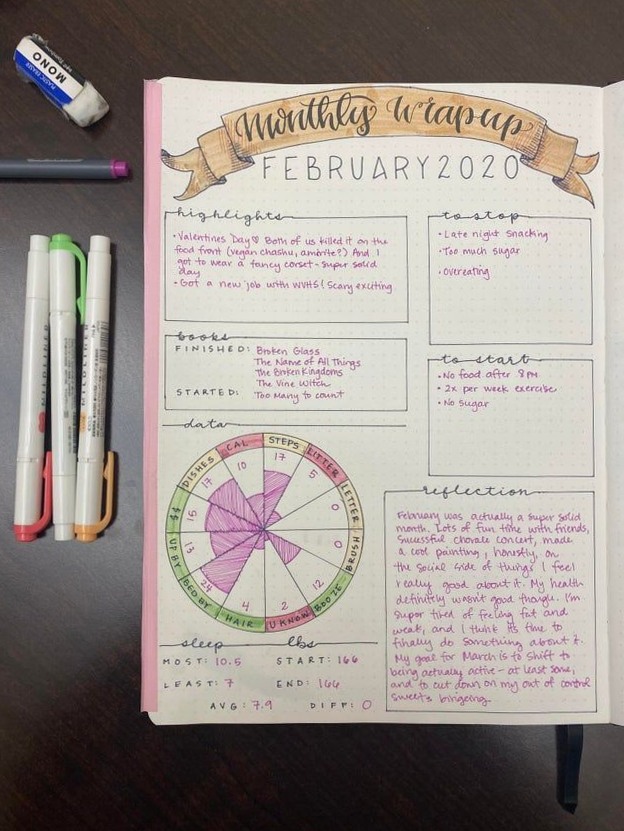 PLASTIC ERASER
MONO
Monthly Wrapup
FEBRUARY 2020
highlights
• Valentines Day♡ Both of us killed it on the
food front (vegan chashu, amirite?) And I
got to wear a fancy corset - super solid
day
• Got a new job with WVHS! Scary exciting
to stop
• Late night snacking
• Too much sugar
• Overeating
books
FINISHED: Broken Glass
The Name of All Things
The Broken Kingdoms
The Vine Witch
STARTED: Too many to count
to start
• No food after 8 PM
• 2x per week exercise
• No sugar
data
STEPS 17
LITTER 5
LETTER 0
BRUSH 0
BOOZE 12
U KNOW 2
HAIR 4
BED BY 24
UP BY 13
$$ 15
DISHES 17
CAL 10
sleep
MOST: 10.5
LEAST: 7
AVG: 7.9
lbs
START: 166
END: 166
DIFF: 0
reflection
February was actually a super solid
month. Lots of fun time with friends,
sucessful chorale concert, made
a cool painting, honestly, on
the social side of things I feel
really good about it. My health
definitly wasn't good though. I'm
super tired of feeling fat and
weak, and I think its time to
finally do something about it.
My goal for March is to shift to
being actually active - at least some,
and to cut down on my out of control
sweets bingeing
MILDLINER